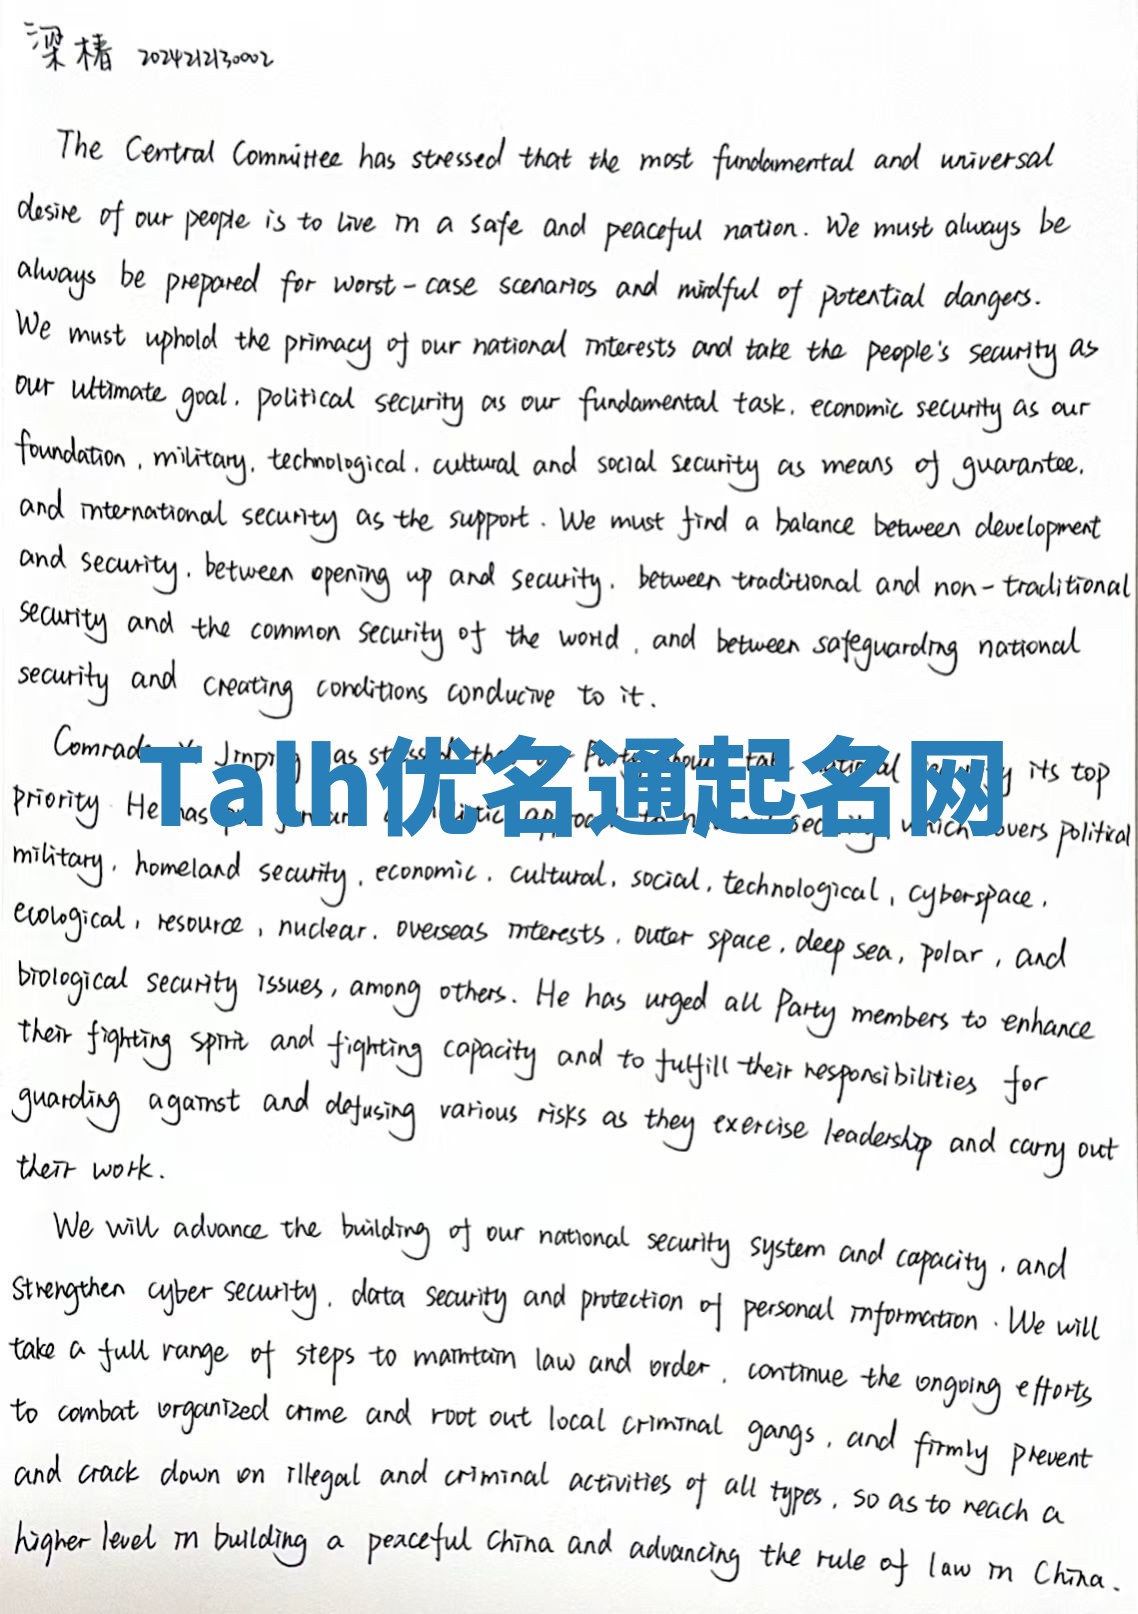 梁椿 2024212130002
The Central Committee has stressed that the most fundamental and universal
desire of our people is to live in a safe and peaceful nation. We must always be
always be prepared for worst-case scenarios and mindful of potential dangers.
We must uphold the primacy of our national interests and take the people's security as
our ultimate goal, political security as our fundamental task, economic security as our
foundation, military, technological, cultural and social security as means of guarantee,
and international security as the support. We must find a balance between development
and security, between opening up and security, between traditional and non-traditional
security and the common security of the world, and between safeguarding national
security and creating conditions conducive to it.
Jinping its top
Talh优名通起名网
priority. He has which political
military, homeland security, economic, cultural, social, technological, cyberspace,
ecological, resource, nuclear, overseas interests, outer space, deep sea, polar, and
biological security issues, among others. He has urged all Party members to enhance
their fighting spirit and fighting capacity and to fulfill their responsibilities for
guarding against and defusing various risks as they exercise leadership and carry out
their work.
We will advance the building of our national security system and capacity, and
strengthen cyber security, data security and protection of personal information. We will
take a full range of steps to maintain law and order, continue the ongoing efforts
to combat organized crime and root out local criminal gangs, and firmly prevent
and crack down on illegal and criminal activities of all types, so as to reach a
higher level in building a peaceful China and advancing the rule of law in China.